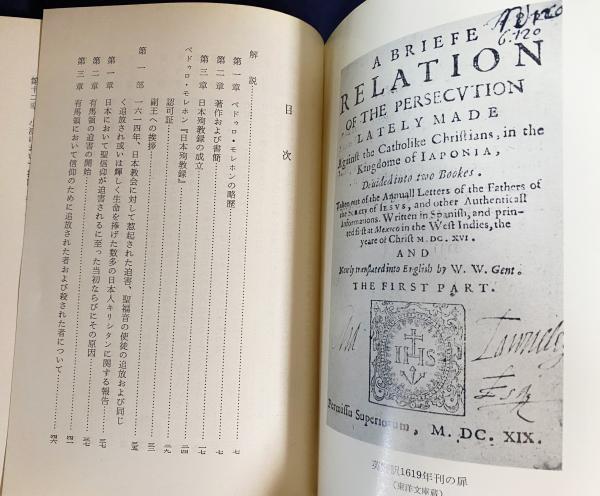 目次
解説……七
第一章 ペドゥロ・モレホンの略歴……七
第二章 著作および書簡……一七
第三章 日本殉教録の成立……二四
ペドゥロ・モレホン『日本殉教録』
認可証……二九
副王への挨拶……三二
第一部 一六一四年、日本教会に対して惹起された迫害、聖福音の使徒の追放および同じ
く追放され或いは輝しく生命を捧げた数多の日本人キリシタンに関する報告……三五
第一章 日本において聖信仰が迫害されるに至った当初ならびにその原因……三七
第二章 有馬領の迫害の開始……四一
第三章 有馬領において信仰のために追放された者および殺された者について……四六
6.120
A BRIEFE
RELATION
OF THE PERSECVTION
LATELY MADE
Against the Catholike Christians, in the
Kingdome of IAPONIA,
Deuided into two Bookes.
Taken out of the Annuall Letters of the Fathers of
the Society of IESVS, and other Authenticall
Informations. Written in Spanish, and prin-
ted first at Mexico in the West Indies, the
yeare of Christ M.DC.XVI.
AND
Newly translated into English by W. W. Gent.
THE FIRST PART.
IHS
Permissu Superiorum, M. DC. XIX.
訳1619年刊の扉
(東洋文庫蔵)